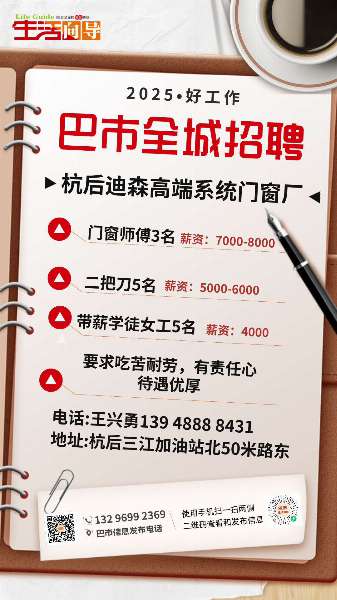 Life Guide
生活向导
2025·好工作
巴市全城招聘
杭后迪森高端系统门窗厂
门窗师傅3名 薪资：7000-8000
二把刀5名 薪资：5000-6000
带薪学徒女工5名 薪资：4000
要求吃苦耐劳，有责任心
待遇优厚
电话:王兴勇139 4888 8431
地址:杭后三江加油站北50米路东
132 9699 2369
巴市信息发布电话
使用手机扫一扫两侧
二维码查看和发布信息